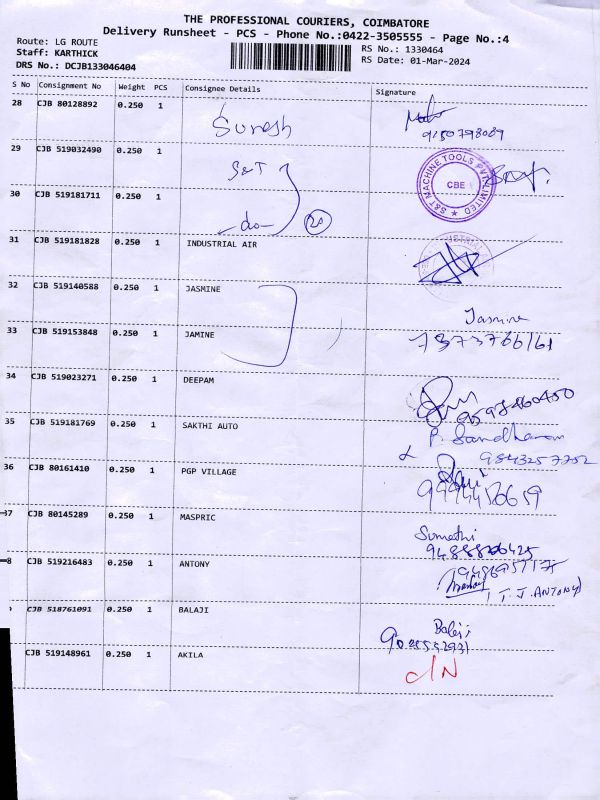 THE PROFESSIONAL COURIERS, COIMBATORE
Delivery Runsheet - PCS - Phone No.:0422-3505555 - Page No.:4
Route: LG ROUTE
Staff: KARTHICK
DRS No.: DCJB133046404
RS No.: 1330464
RS Date: 01-Mar-2024
S No Consignment No Weight PCS Consignee Details Signature
28 CJB 80128892 0.250 1 Suresh
9150798089
29 CJB 519032490 0.250 1 S&T
S&T MACHINE TOOLS PVT LIMITED
CBE
30 CJB 519181711 0.250 1 do 20
31 CJB 519181828 0.250 1 INDUSTRIAL AIR
32 CJB 519140588 0.250 1 JASMINE
Jasmine
33 CJB 519153848 0.250 1 JAMINE 7373766161
34 CJB 519023271 0.250 1 DEEPAM
35 CJB 519181769 0.250 1 SAKTHI AUTO
9843257752
36 CJB 80161410 0.250 1 PGP VILLAGE
37 CJB 80145289 0.250 1 MASPRIC
Sumathi
8 CJB 519216483 0.250 1 ANTONY
T.J. ANTONY
CJB 518761091 0.250 1 BALAJI
Balaji
CJB 519148961 0.250 1 AKILA